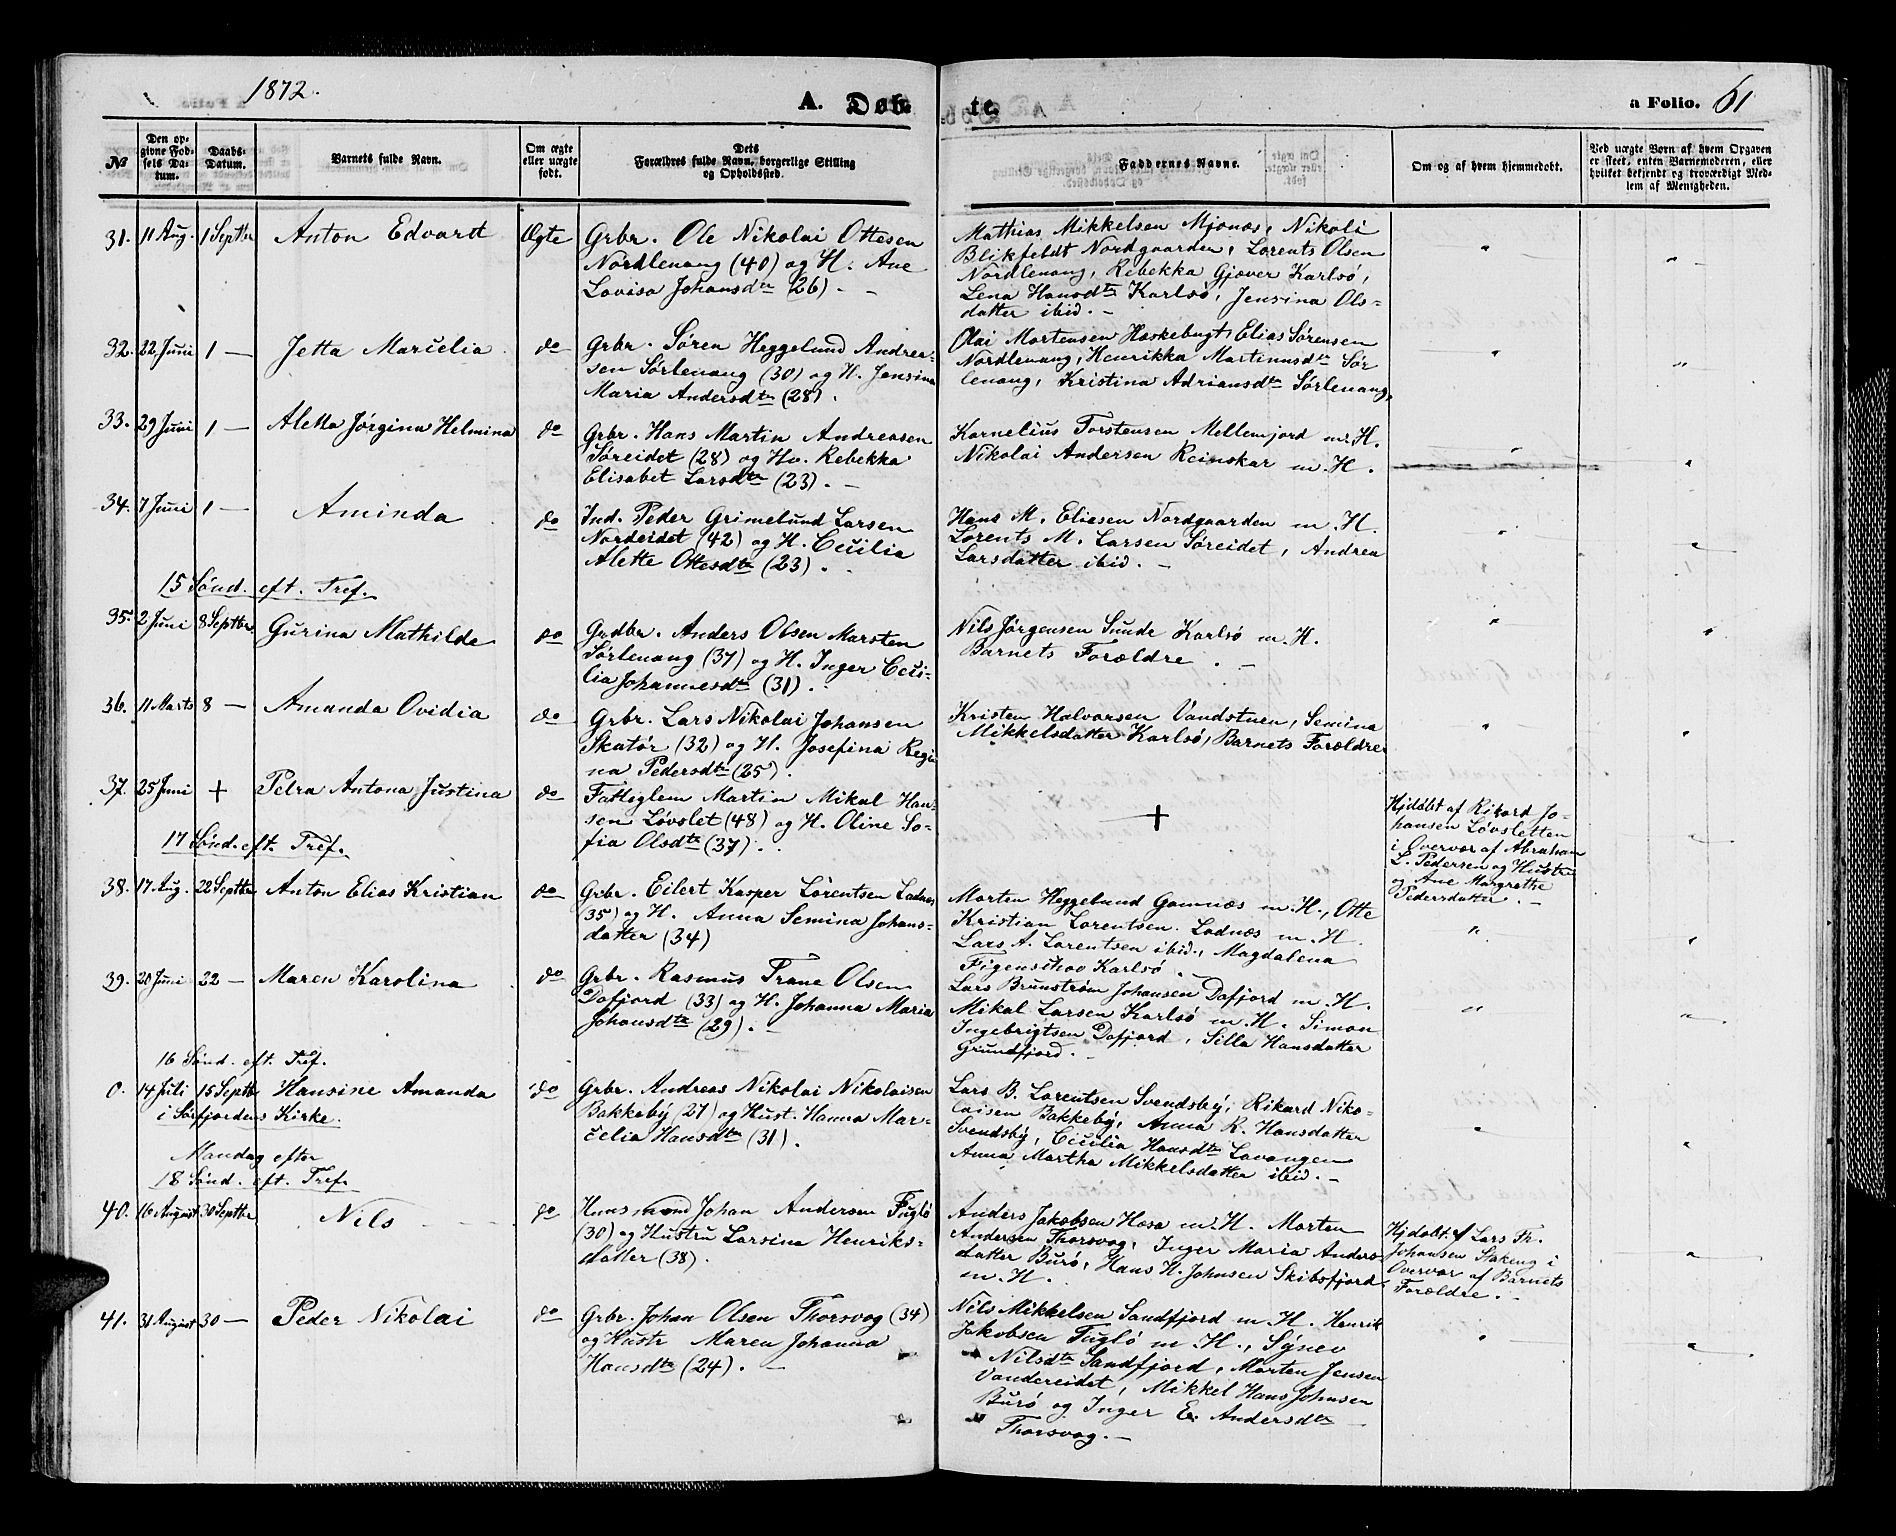 1872.
A. Døb-
te.
a Folio. 61
№
Den op-
givne Fød-
sels Da-
tum.
Daabs-
Datum.
Barnets fulde Navn.
Om ægte
eller uægte
født.
Dets
Forældres fulde Navn, borgerlige Stilling
og Opholdssted.
Faddernes Navne.
Om og af hvem hjemmedøbt.
Ved uægte Børn af hvem Opgaven
er skeet, enten Barnemoderen, eller
hvilket bekjendt og troværdigt Med-
lem af Menigheden.
31. 11 Aug. 1 Septbr Anton Edvardt Ægte
Grbr. Ole Nikolai Ottesen
Nordlenang (40) og H. Ane
Lovisa Johansdtr (26). -
Mathias Mikkelsen Mjønæs, Nikoli
Blikfeldt Nordgaarden, Lorents Olsen
Nordlenang, Rebekka Gjæver Karlsö,
Lena Hansdtr Karlsö, Jensina Ols-
datter ibid. -
32. 22 Juni 1 — Jetta Marcelia do
Grbr. Sören Heggelund Andrea-
sen Sörlenang (30) og H. Jensina
Maria Andersdtr (28).
Olai Mortensen Haskebugt, Elias Sörensen
Nordlenang, Henrikka Martinusdtr Sör
lenang, Kristina Adriansdtr Sörlenang,
33. 29 Juni 1 — Aletta Jörgina Helmina do
Grbr. Hans Martin Andreasen
Söreidet (28) og Hu. Rebekka
Elisabet Larsdtr (23). -
Kornelius Torstensen Mellemjord m. H.
Nikolai Andersen Reinskar m. H.
34. 7 Juni 1 — Aminda do
Ind. Peder Grimelund Larsen
Nordeidet (42) og H. Cecilia
Alette Ottesdtr (23).
Hans M. Eliesen Nordgaarden m. H.
Lorents M. Larsen Söreidet, Andrea
Larsdatter ibid. -
15 Sönd. eft. Tref.
35. 2 Juni 8 Septbr Gurina Mathilde do
Grdbr. Anders Olsen Marsten
Sörlenang (37) og H. Inger Ceci-
lia Johannesdtr (31).
Nils Jörgensen Sunde Karlsö m. H.
Barnets Forældre. -
36. 11 Marts 8 — Amanda Ovidia do
Grbr. Lars Nikolai Johansen
Skatör (32) og H. Josefina Regi
na Pedersdtr (25).
Kristen Halvorsen Vandstuen, Semina
Mikkelsdatter Karlsö, Barnets Forældre
37. 25 Juni + Petra Antona Justina do
Fattiglem Martin Mikal Han-
sen Lövslet (48) og H. Oline So-
fia Olsdtr (37).
+
Hjdöbt af Rikard Jo-
hansen Lövsletten
i Overvær af Abraham
L. Pedersen og Hustru
og Ane Margrethe
Pedersdatter. -
17 Sönd. eft. Tref.
38. 17 Aug. 22 Septbr Anton Elias Kristian do
Grbr. Eilert Kasper Lorentsen Ladnæs
(35) og H. Anna Semina Johans-
datter (34)
Morten Heggelund Gamnæs m. H., Otte
Kristian Lorentsen Ladnæs m. H.
Lars A. Lorentsen ibid., Magdalena
Figenschov Karlsö. -
39. 20 Juni 22 — Maren Karolina do
Grbr. Rasmus Trane Olsen
Dafjord (33) og H. Johanna Maria
Johansdtr (29). -
Lars Brunström Johansen Dafjord m. H.
Mikal Larsen Karlsö m. H. Simon
Ingebrigtsen Dafjord, Silla Hansdatter
Grundfjord. -
16 Sönd. eft. Tref.
0. 14 Juli 15 Septb Hansine Amanda do
i Sörfjordens Kirke.
Grbr. Andreas Nikolai Nikolaisen
Bakkeby (27) og Hust. Hanna Mar-
celia Hansdtr (31).
Lars B. Lorentsen Svendsby, Rikard Niko-
laisen Bakkeby, Anna K. Hansdatter
Svendsby, Cecilia Hansdtr Lavangen
Anna Martha Mikkelsdatter ibid. -
Mandag efter
18 Sönd. eft. Tref.
40. 16 August 30 Septbr Nils do
Huusmand Johan Andersen Fuglö
(30) og Hustru Larsina Henriks-
datter (38).
Anders Jakobsen Hasa m. H. Morten
Andersen Thorsvag, Inger Maria Anders-
datter Burö, Hans H. Johnsen Skibsfjord
m. H.
Hjdöbt. af Lars Th.
Johansen Stakeng i
Overvær af Barnets
Forældre. -
41. 31 August 30 — Peder Nikolai do
Grbr. Johan Olsen Thorsvag (34)
og Hustr Maren Johanna
Hansdtr (24). -
Nils Mikkelsen Sandfjord m. H. Henrik
Jakobsen Fuglö m. H., Synev
Nilsdtr Sandfjord, Morten Jensen
Vandereidet, Mikkel Hans Johnsen
Burö og Inger E. Andersdtr
Thorsvag. -